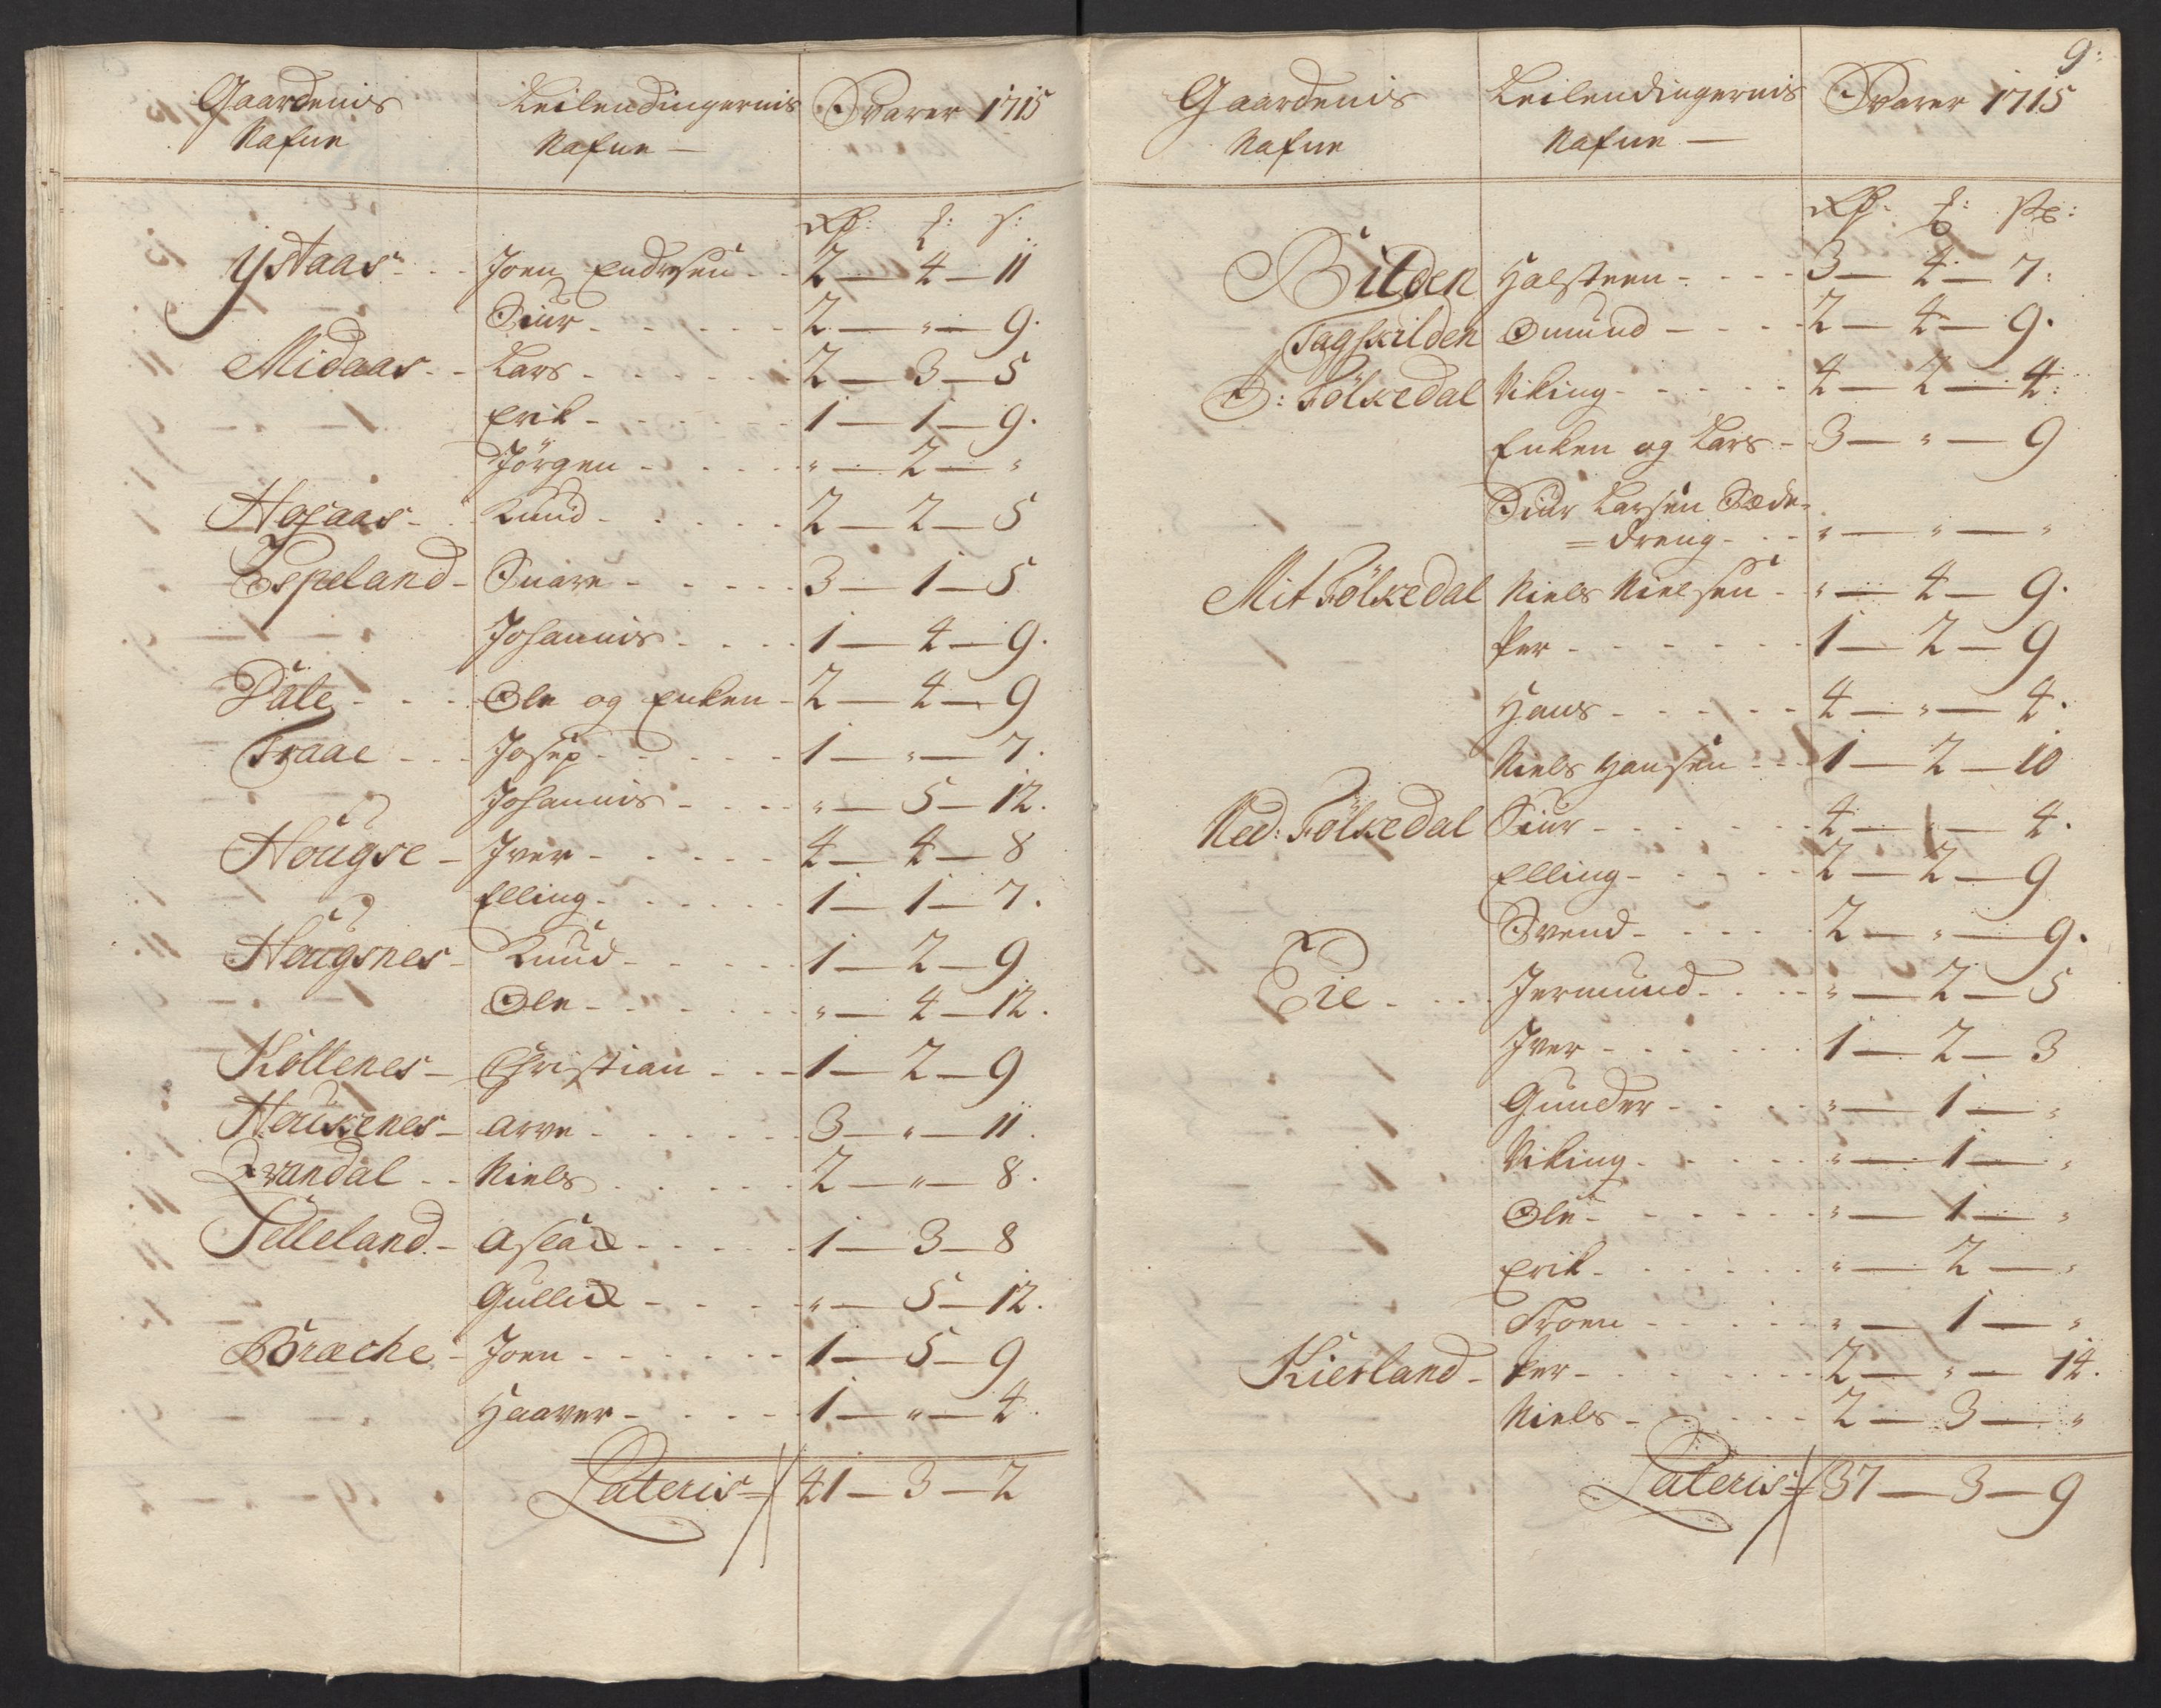 Gaardenis Nafne Leilendingernis Nafne — Svarer 1715
Rd: f: s:
Ystaas - - Joen Endresen - - 2 — 4 — 11
Siur - - - - - 2 — " — 9.
Midaas - - Lars - - - - - 2 — 3 — 5
Erik - - - - - 1 — 1 — 9.
Jörgen - - - - " — 2 — "
Hofaas - - Knud - - - - - 2 — 2 — 5
Espeland - Snare - - - - 3 — 1 — 5
Johannis - - - - 1 — 4 — 9.
Däle - - - Ole og Enken - 2 — 4 — 9
Traae - - - Josep - - - - - 1 — " — 7.
Johannis - - - - " — 5 — 12.
Hougse - Iver - - - - - 4 — 4 — 8
Elling - - - - - 1 — 1 — 7.
Hougsnes - Knud - - - - - 1 — 2 — 9
Ole - - - - - " — 4 — 12.
Kollenes - Christian - - - 1 — 2 — 9
Haukenes - Arve - - - - - 3 — " — 11.
Qvandal - - Niels - - - - - 2 — " — 8.
Selleland - Aslack - - - - 1 — 3 — 8
Gullick - - - - " — 5 — 12.
Bræche - Joen - - - - - 1 — 5 — 9
Haaver - - - - 1 — " — 4.
Lateris 41 — 3 — 2
9:
Gaardenis Nafne Leilendingernis Nafne — Svarer 1715
Rd: f:
Bilden Halsteen - - - - 3 — 4 — 7:
Tagskilden Omund - - - - 2 — 4 — 9.
O: Fölkedal Viking - - - - 4 — 2 — 4:
Enken og Lars - 3 — " — 9
Siur Larsen
= dreng - - - " — " — "
Mit Fölkedal Niels Nielsen - " — 4 — 9.
Per - - - - - - 1 — 2 — 9
Hans - - - - - 4 — " — 4.
Niels Hansen - - 1 — 2 — 10
Ned: Fölkedal Siur - - - - - 4 — 1 — 4.
Elling - - - - - 2 — 2 — 9
Svend - - - - - 2 — " — 9.
Eie - - - Jermund - - - " — 2 — 5
Iver - - - - - 1 — 2 — 3
Gunder - - - - " — 1 — "
Viking - - - - " — 1 — "
Ole - - - - - - " — 1 — "
Erik - - - - - " — 2 — "
Troen - - - - - " — 1 — "
Kierland - Per - - - - - - 2 — " — 14.
Niels - - - - - 2 — 3 — "
Lateris 37 — 3 — 9